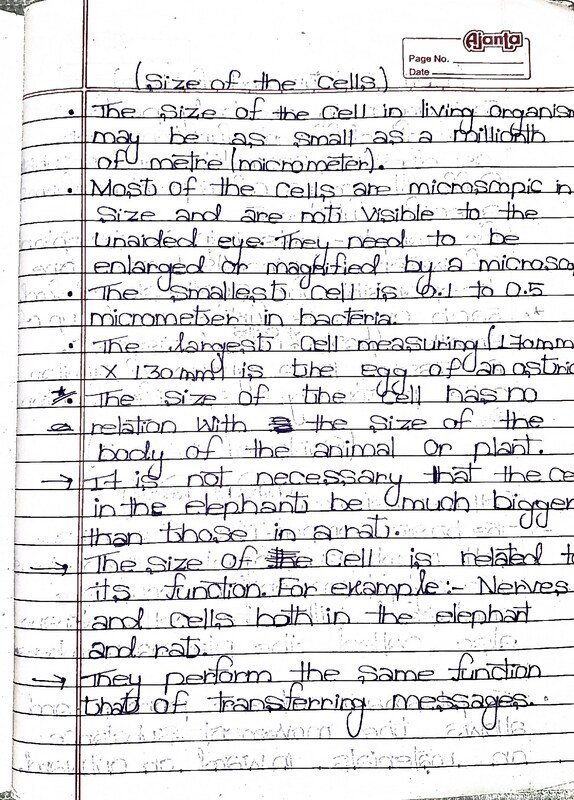 Ajanta
Page No.
Date
(Size of the cells)
• The size of the cell in living organism
may be as small as a millionth
of metre (micrometer).
• Most of the cells are microscopic in
size and are not visible to the
unaided eye. They need to be
enlarged or magnified by a microsco
• The smallest cell is 0.1 to 0.5
micrometer in bacteria.
• The largest cell measuring (170mm
X 130mm) is the egg of an ostric
* The size of the cell has no
relation with the size of the
body of the animal or plant.
→ It is not necessary that the ce
in the elephant be much bigger
than those in a rat.
→ The size of cell is related to
its function. For example:- Nerves
and cells both in the elephant
and rat.
→ They perform the same function
that of transferring messages.